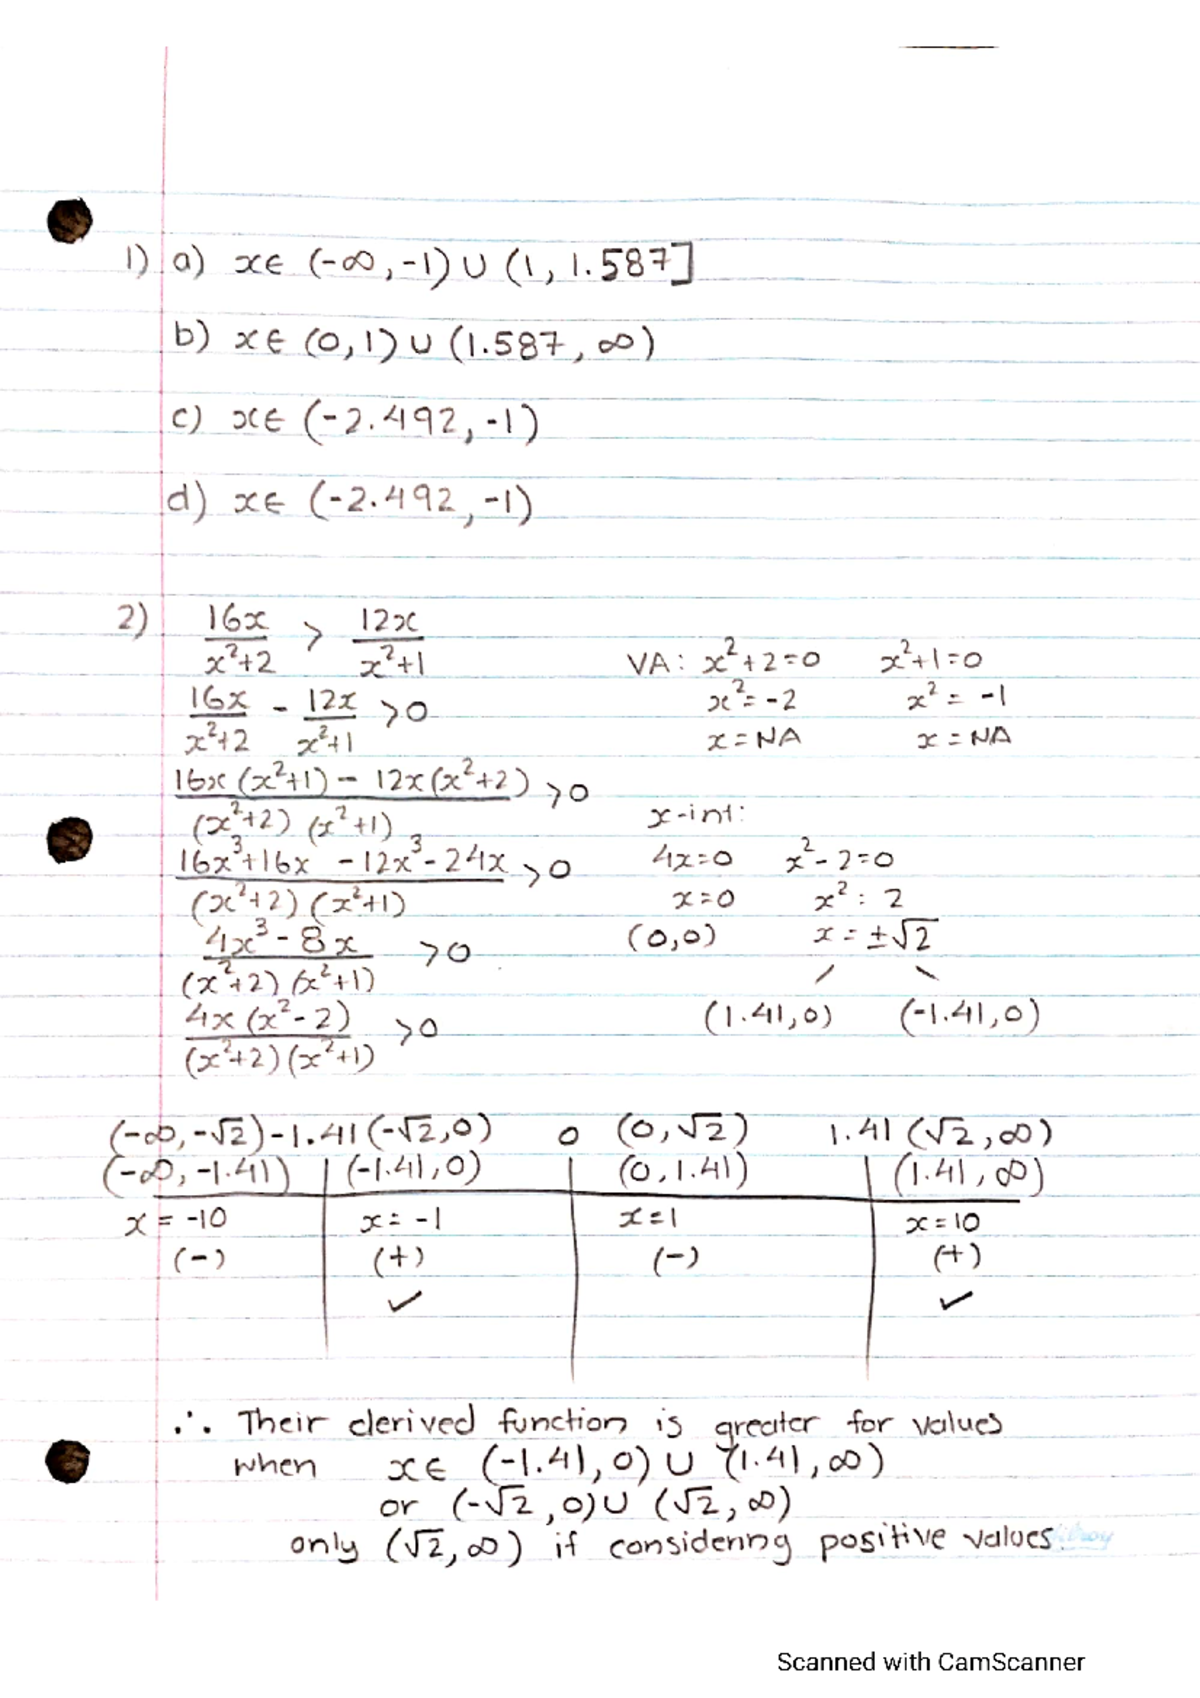 1) a) x∈ (-∞,-1) ∪ (1, 1.587]
b) x∈ (0,1) ∪ (1.587, ∞)
c) x∈ (-2.492, -1)
d) x∈ (-2.492, -1)
2) 16x/(x²+2) > 12x/(x²+1)
16x/(x²+2) - 12x/(x²+1) >0
16x(x²+1) - 12x(x²+2) / (x²+2)(x²+1) >0
16x³+16x -12x³-24x / (x²+2)(x²+1) >0
4x³-8x / (x²+2)(x²+1) >0
4x(x²-2) / (x²+2)(x²+1) >0
VA: x²+2=0 x²+1=0
x²=-2 x²= -1
x=NA x=NA
x-int:
4x=0 x²-2=0
x=0 x²: 2
(0,0) x=±√2
(1.41,0) (-1.41,0)
(-∞,-√2) -1.41 (-√2,0) 0 (0,√2) 1.41 (√2,∞)
(-∞,-1.41) (-1.41,0) (0,1.41) (1.41,∞)
x=-10 x=-1 x=1 x=10
(-) (+) (-) (+)
✓ ✓
∴ Their derived function is greater for values
when x∈ (-1.41,0) ∪ (1.41,∞)
or (-√2,0)∪ (√2,∞)
only (√2,∞) if considering positive values.
Scanned with CamScanner